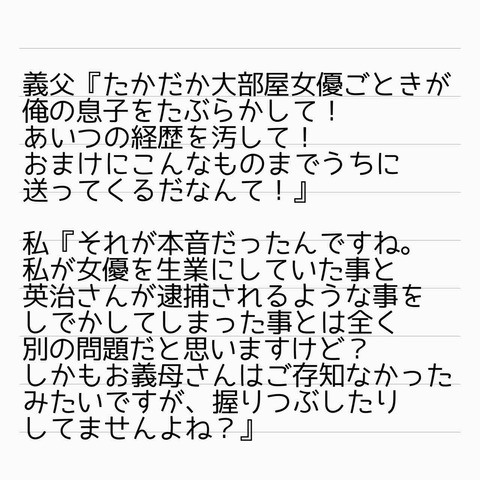 義父『たかだか大部屋女優ごときが
俺の息子をたぶらかして！
あいつの経歴を汚して！
おまけにこんなものまでうちに
送ってくるだなんて！』
私『それが本音だったんですね。
私が女優を生業にしていた事と
英治さんが逮捕されるような事を
しでかしてしまった事とは全く
別の問題だと思いますけど？
しかもお義母さんはご存知なかった
みたいですが、握りつぶしたり
してませんよね？』